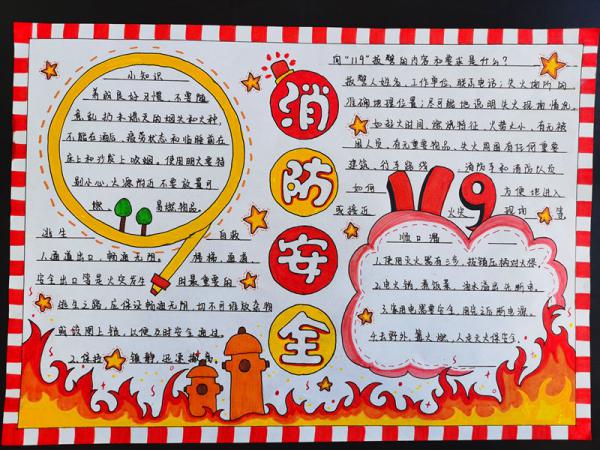 消防安全
小知识
养成良好习惯,不要随
意乱扔未熄灭的烟头和火种,
不能在酒后、疲劳状态和临睡前在
床上和沙发上吸烟,使用明火要特
别小心,火源附近不要放置可
燃、易燃物品。
逃生 自救
1.通道出口,畅通无阻,楼梯、通道、
安全出口等是火灾发生时最重要的
逃生之路,应保证畅通无阻,切不可堆放杂物
或设闸上锁,以便紧急时安全通过。
2.保持镇静,迅速撤离
向"119"报警的内容和要求是什么?
报警人姓名,工作单位、联系电话;失火场所的
准确地理位置;尽可能地说明失火现场情况,
如起火时间、燃烧特征、火势大小、有无被
困人员、有无重要物品、失火周围有何重要
建筑、行车路线、消防车和消防队员
如何方便地进入
或接近火灾现场等
119
顺口溜
1.使用灭火器有三步,拔销压柄对火根。
2.电火锅,煮饭菜,汤水溢出先断电。
3.家用电器要安全,用完立即断电源。
4.去野外,篝火燃,人走灭火保安全。